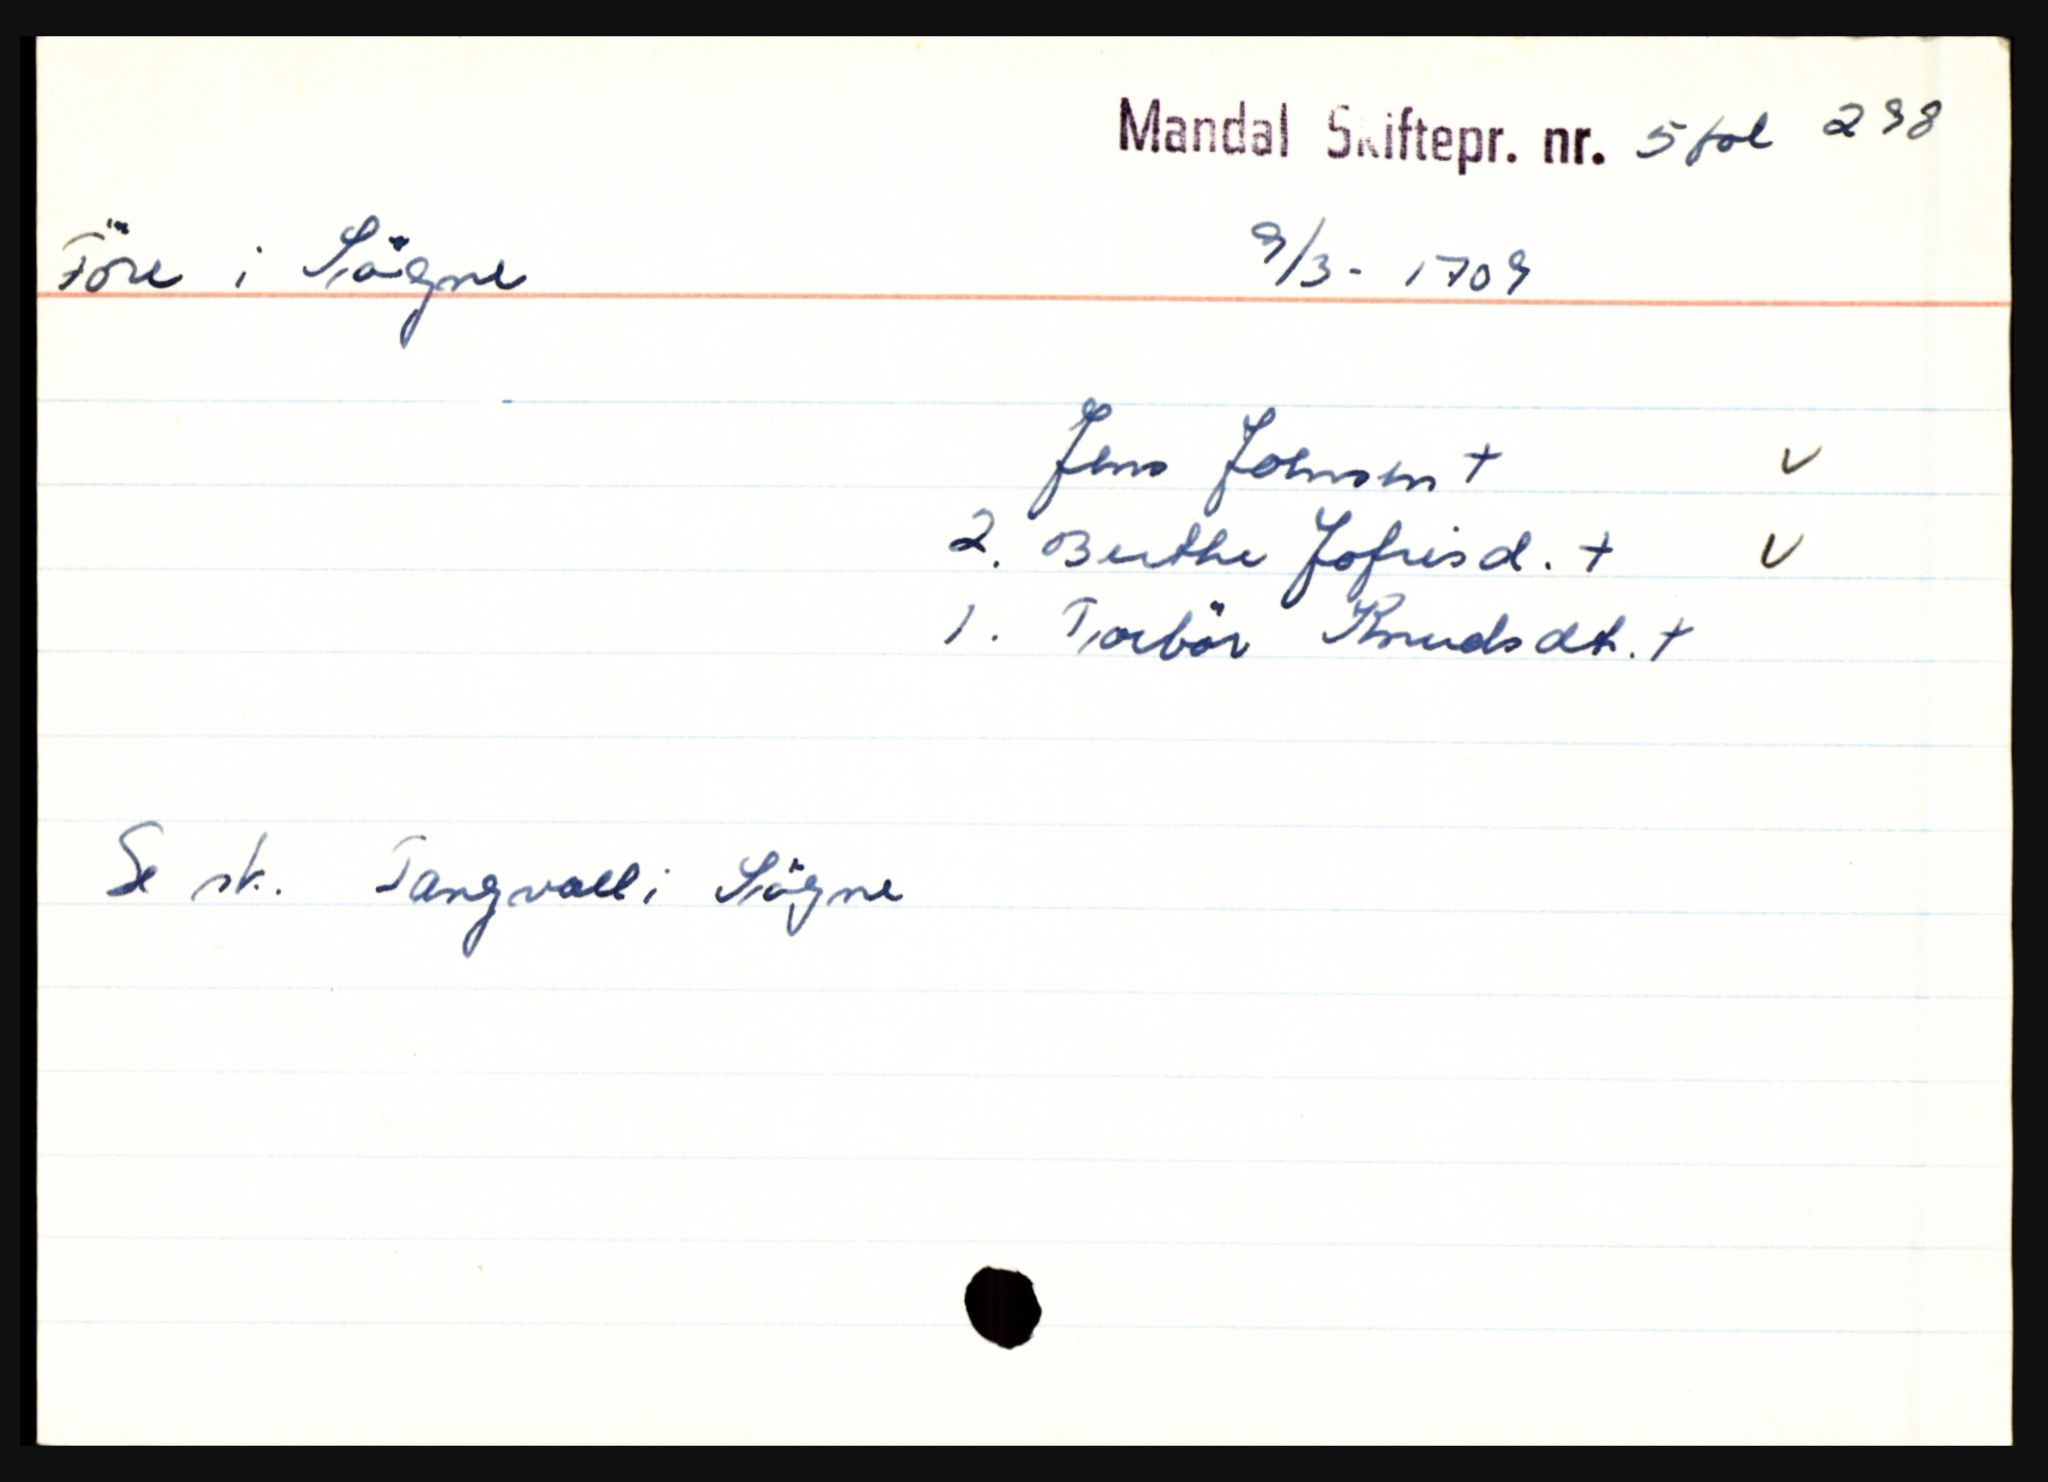 Mandal Skiftepr. nr. 5 fol 298
Före i Sögne 9/3 - 1709
Jens Joensen + v
2. Berthe Jofrisd. + v
1. Torbör Knudsdtr. +
Se sk. Tangvall i Sögne